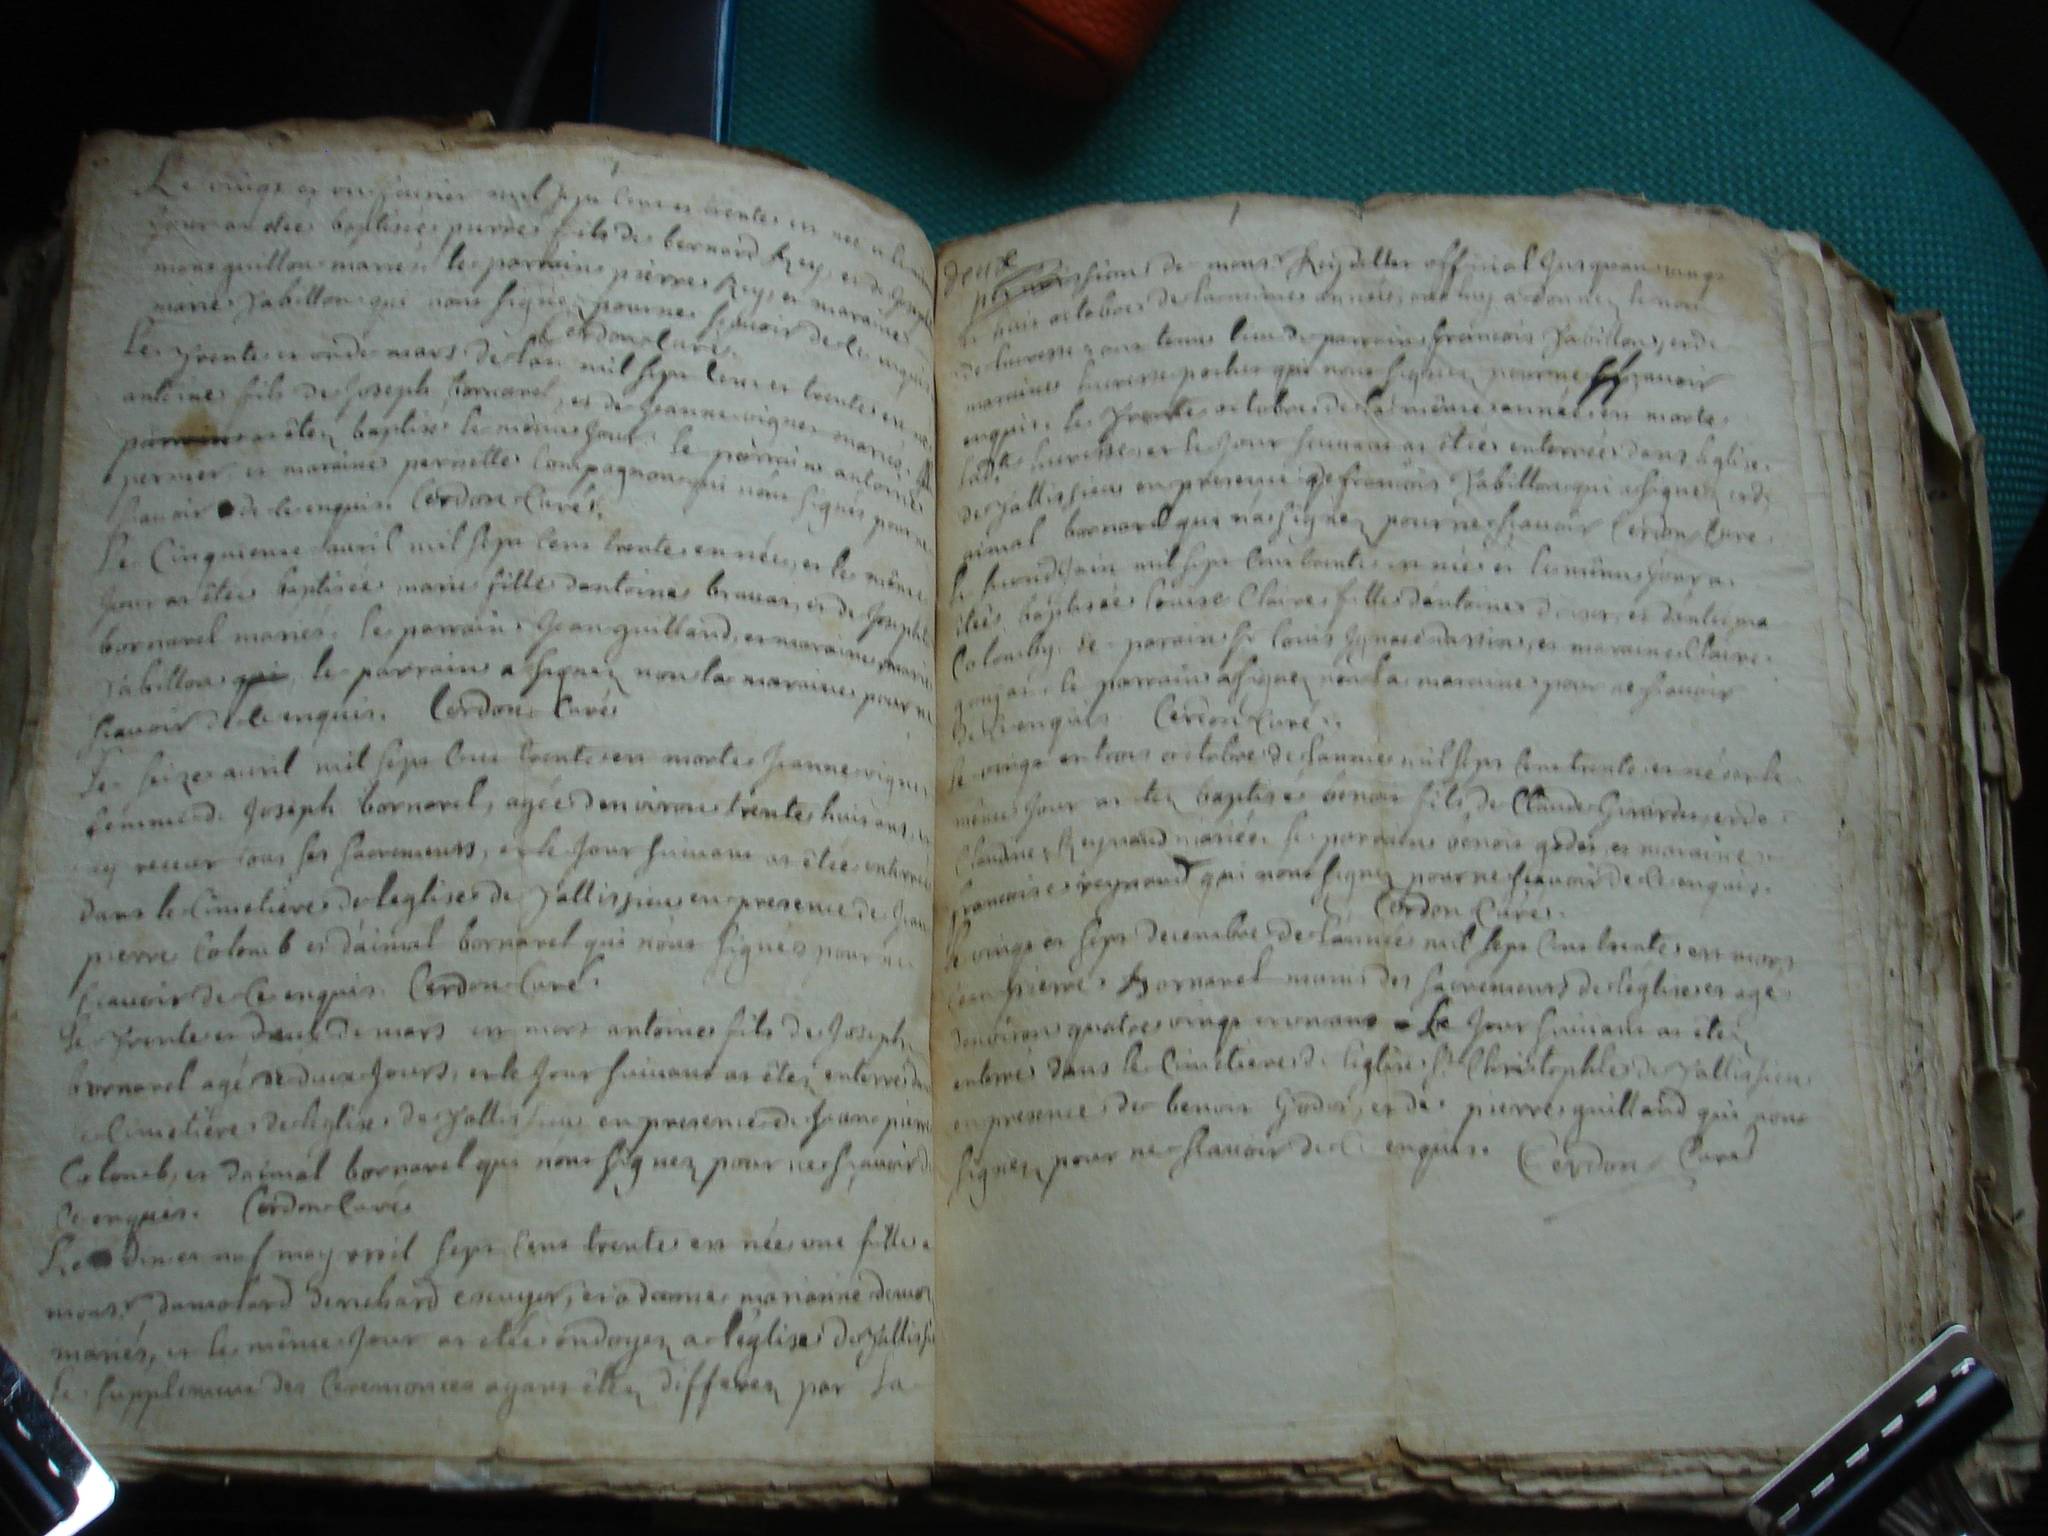 Le vingt et un janvier mil sept cent et trente est né et le même
jour a etee baptisée pierre fils de bernard Rey, et de
mariés le parrain pierre Rey et maraine
marie Jabillon qui n'ont signez pour ne sçavoir de ce enquis
Cerdon Curé.
Le trente et un de mars de l'an mil sept cent et trente est né
antoine fils de Joseph bornarel, et de Jeanne vignes mariés
a étez baptisé le même jour le parrain antoine
permier et maraine pernette Compagnon qui n'ont signés pour ne
sçavoir de ce enquis. Cerdon Curé.
Le Cinquieme avril mil sept cent trente est née, et le même
jour at êtée baptisée marie fille d'antoine et de Joseph
bornarel mariés. le parrain Jean guilland, et maraine marie
Jabillon le parrain a signez non la maraine pour ne
sçavoir de ce enquis. Cerdon Curé
Le seize avril mil sept cent trente est morte Jeanne vignes
femme de Joseph bornarel, agée d'environ trente huit ans, et
ay receu tous ses sacremens, et le jour suivant at êtée enterrée
dans le Cimetière de leglise de Jallissieu en presence de Jean
pierre Colomb et d'aimal bornarel qui n'ont signés pour ne
sçavoir de ce enquis. Cerdon Curé.
Le trente et deux de mars est mort antoine fils de Joseph
bornarel agé de deux jours, et le jour suivant at êtez enterré dans
le Cimetière de leglise de Jallissieu en presence de Jean pierre
Colomb, et d'aimal bornarel qui n'ont signez pour ne sçavoir de
ce enquis. Cerdon Curé
Le dix et nof may mil sept cent trente est née une fille a
mons.r damolard escuyer, et a dame marianne
mariés, et le même jour at etée ondoyez a l'église de Jallissieu
le supplement des Ceremonies ayant êtez differez par la
deux
permission de mons.r Reydellet official jusquau vingt
et huit octobre de la meme année, on luy a donnez le nom
de lucresse, ont tenu lieu de parrain francois Jabillon, et de
maraine lucresse pochet qui n'ont signez pour ne sçavoir
enquis. le trente octobre de la même année est morte
lad.te lucresse et le jour suivant at êtée enterrée dans leglise
de Jallissieu en presence de francois Jabillon qui a signez et d'
aimal bornarel qui n'a signez pour ne sçavoir Cerdon Curé
Le second juin mil sept cent trente est née et le même jour a
étée baptisée Louise Claire fille d'antoine et d'anthelma
Colomby. le parain S.r Louis Ignace et maraine Claire
goujat. le parrain a signez non la maraine pour ne sçavoir
de ce enquis Cerdon Curé.
Le vingt et trois octobre de l'année mil sept cent trente est né et le
même jour at êtez baptisé benoit fils de Claude Girardet, et de
Claudine Reynaud mariés. le parrain benoit godet et maraine
francoise reynaud qui n'ont signez pour ne sçavoir de ce enquis.
Cerdon Curé.
Le vingt et sept decembre de l'année mil sept cent trente est mort
Jean pierre Bornarel munis des sacremens de l'église et agé
d'environ quatre vingt et un ans Le jour suivant at êtez
enterré dans le Cimetiere de l'église S.t Christophle de Jallissieu
en presence de benoit Godet, et de pierre guilland qui n'ont
signez pour ne sçavoir de ce enquis. Cerdon Curé